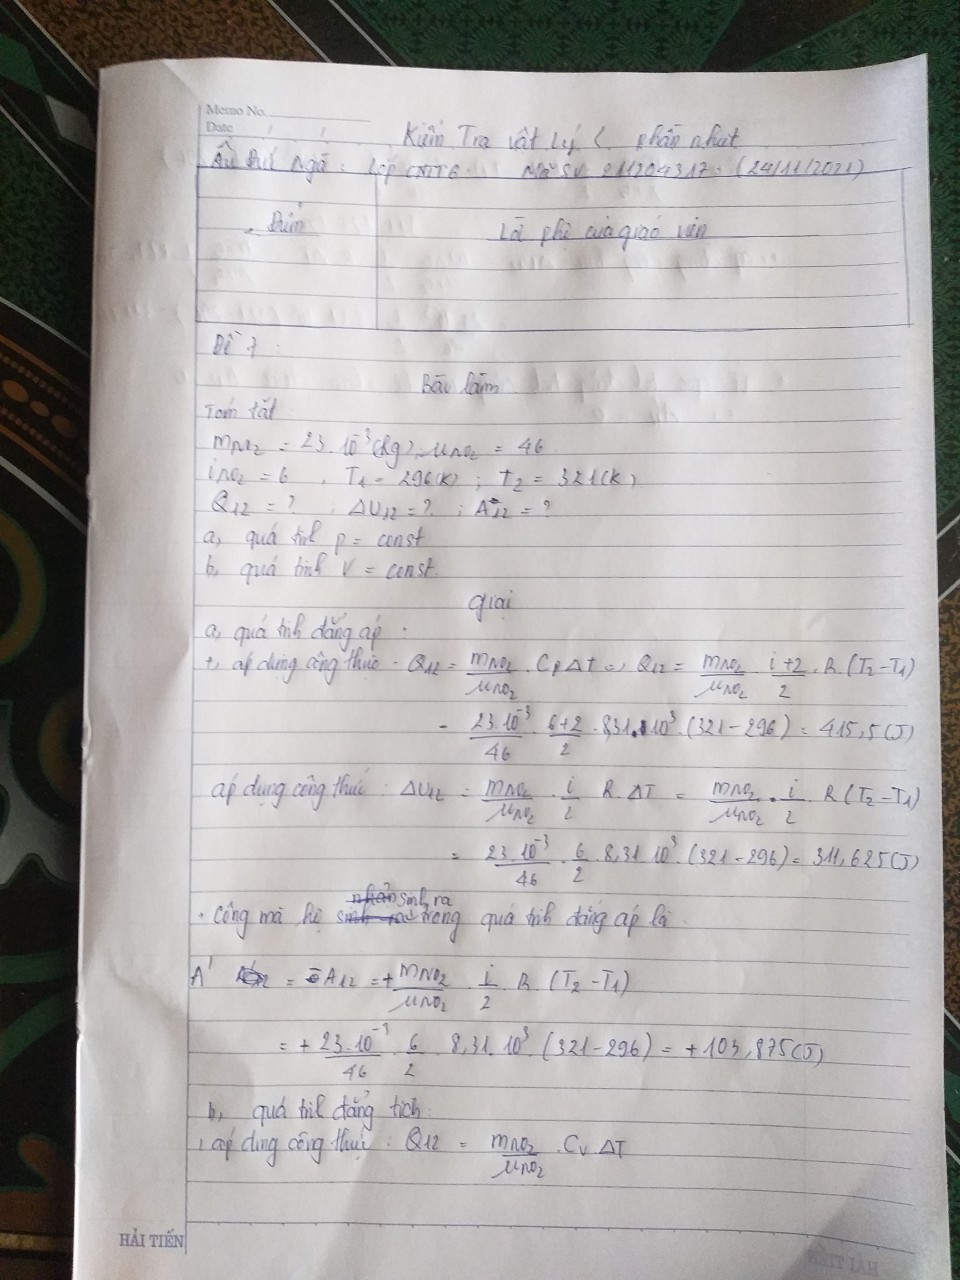 Memo No.
Date
Kiểm Tra vật lý ( phần nhiệt
Lớp CNTT6 Mã SV 211204317 (24/11/2021)
Điểm Lời phê của giáo viên
Đề 7 :
Bài làm
Tóm tắt
m_NO₂ = 23.10⁻³(kg), μ_NO₂ = 46
i_NO₂ = 6 , T₁ = 296(K) ; T₂ = 321(K)
Q₁₂ = ? ; ΔU₁₂ = ? ; A₁₂ = ?
a, quá trình p = const
b, quá trình V = const.
giải
a, quá trình đẳng áp .
+, áp dụng công thức . Q₁₂ = m_NO₂/μ_NO₂ . Cp Δt => Q₁₂ = m_NO₂/μ_NO₂ . i+2/2 . R.(T₂-T₁)
= 23.10⁻³/46 . 6+2/2 . 8,31.10³.(321-296) = 415,5(J)
áp dụng công thức : ΔU₁₂ = m_NO₂/μ_NO₂ . i/2 R.ΔT = m_NO₂/μ_NO₂ . i/2 R(T₂-T₁)
= 23.10⁻³/46 . 6/2 . 8,31.10³.(321-296) = 311,625(J)
. công mà hệ sinh ra trong quá trình đẳng áp là .
A' = -A₁₂ = + m_NO₂/μ_NO₂ . i/2 . R. (T₂-T₁)
= + 23.10⁻³/46 . 6/2 . 8,31.10³.(321-296) = +103,875(J)
b, quá trình đẳng tích
, áp dụng công thức : Q₁₂ = m_NO₂/μ_NO₂ . Cv.ΔT
HẢI TIẾN